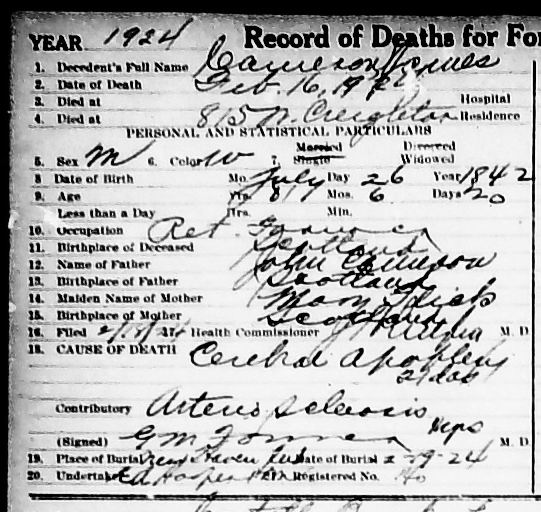 YEAR 1924 Record of Deaths for For
1. Decedent's Full Name Cameron James
2. Date of Death Feb. 16, 1924
3. Died at Hospital
4. Died at 815 W. Creighton Residence
PERSONAL AND STATISTICAL PARTICULARS
Married Divorced
5. Sex M 6. Color W 7. Single Widowed
8 Date of Birth Mo. July Day 26 Year 1842
9. Age Yrs. 81 Mos. 6 Days 20
Less than a Day Hrs. Min.
10. Occupation Ret. Farmer
11. Birthplace of Deceased Scotland
12. Name of Father John Cameron
13. Birthplace of Father Scotland
14. Maiden Name of Mother Mary
15. Birthplace of Mother Scotland
16. Filed 2/18/24 17. Health Commissioner M. D.
18. CAUSE OF DEATH Cerebral Apoplexy
21 das
Contributory Arterio Sclerosis
(Signed) G M M. D.
19. Place of Burial New Haven Date of Burial 2-19-24
20. Undertaker Registered No.